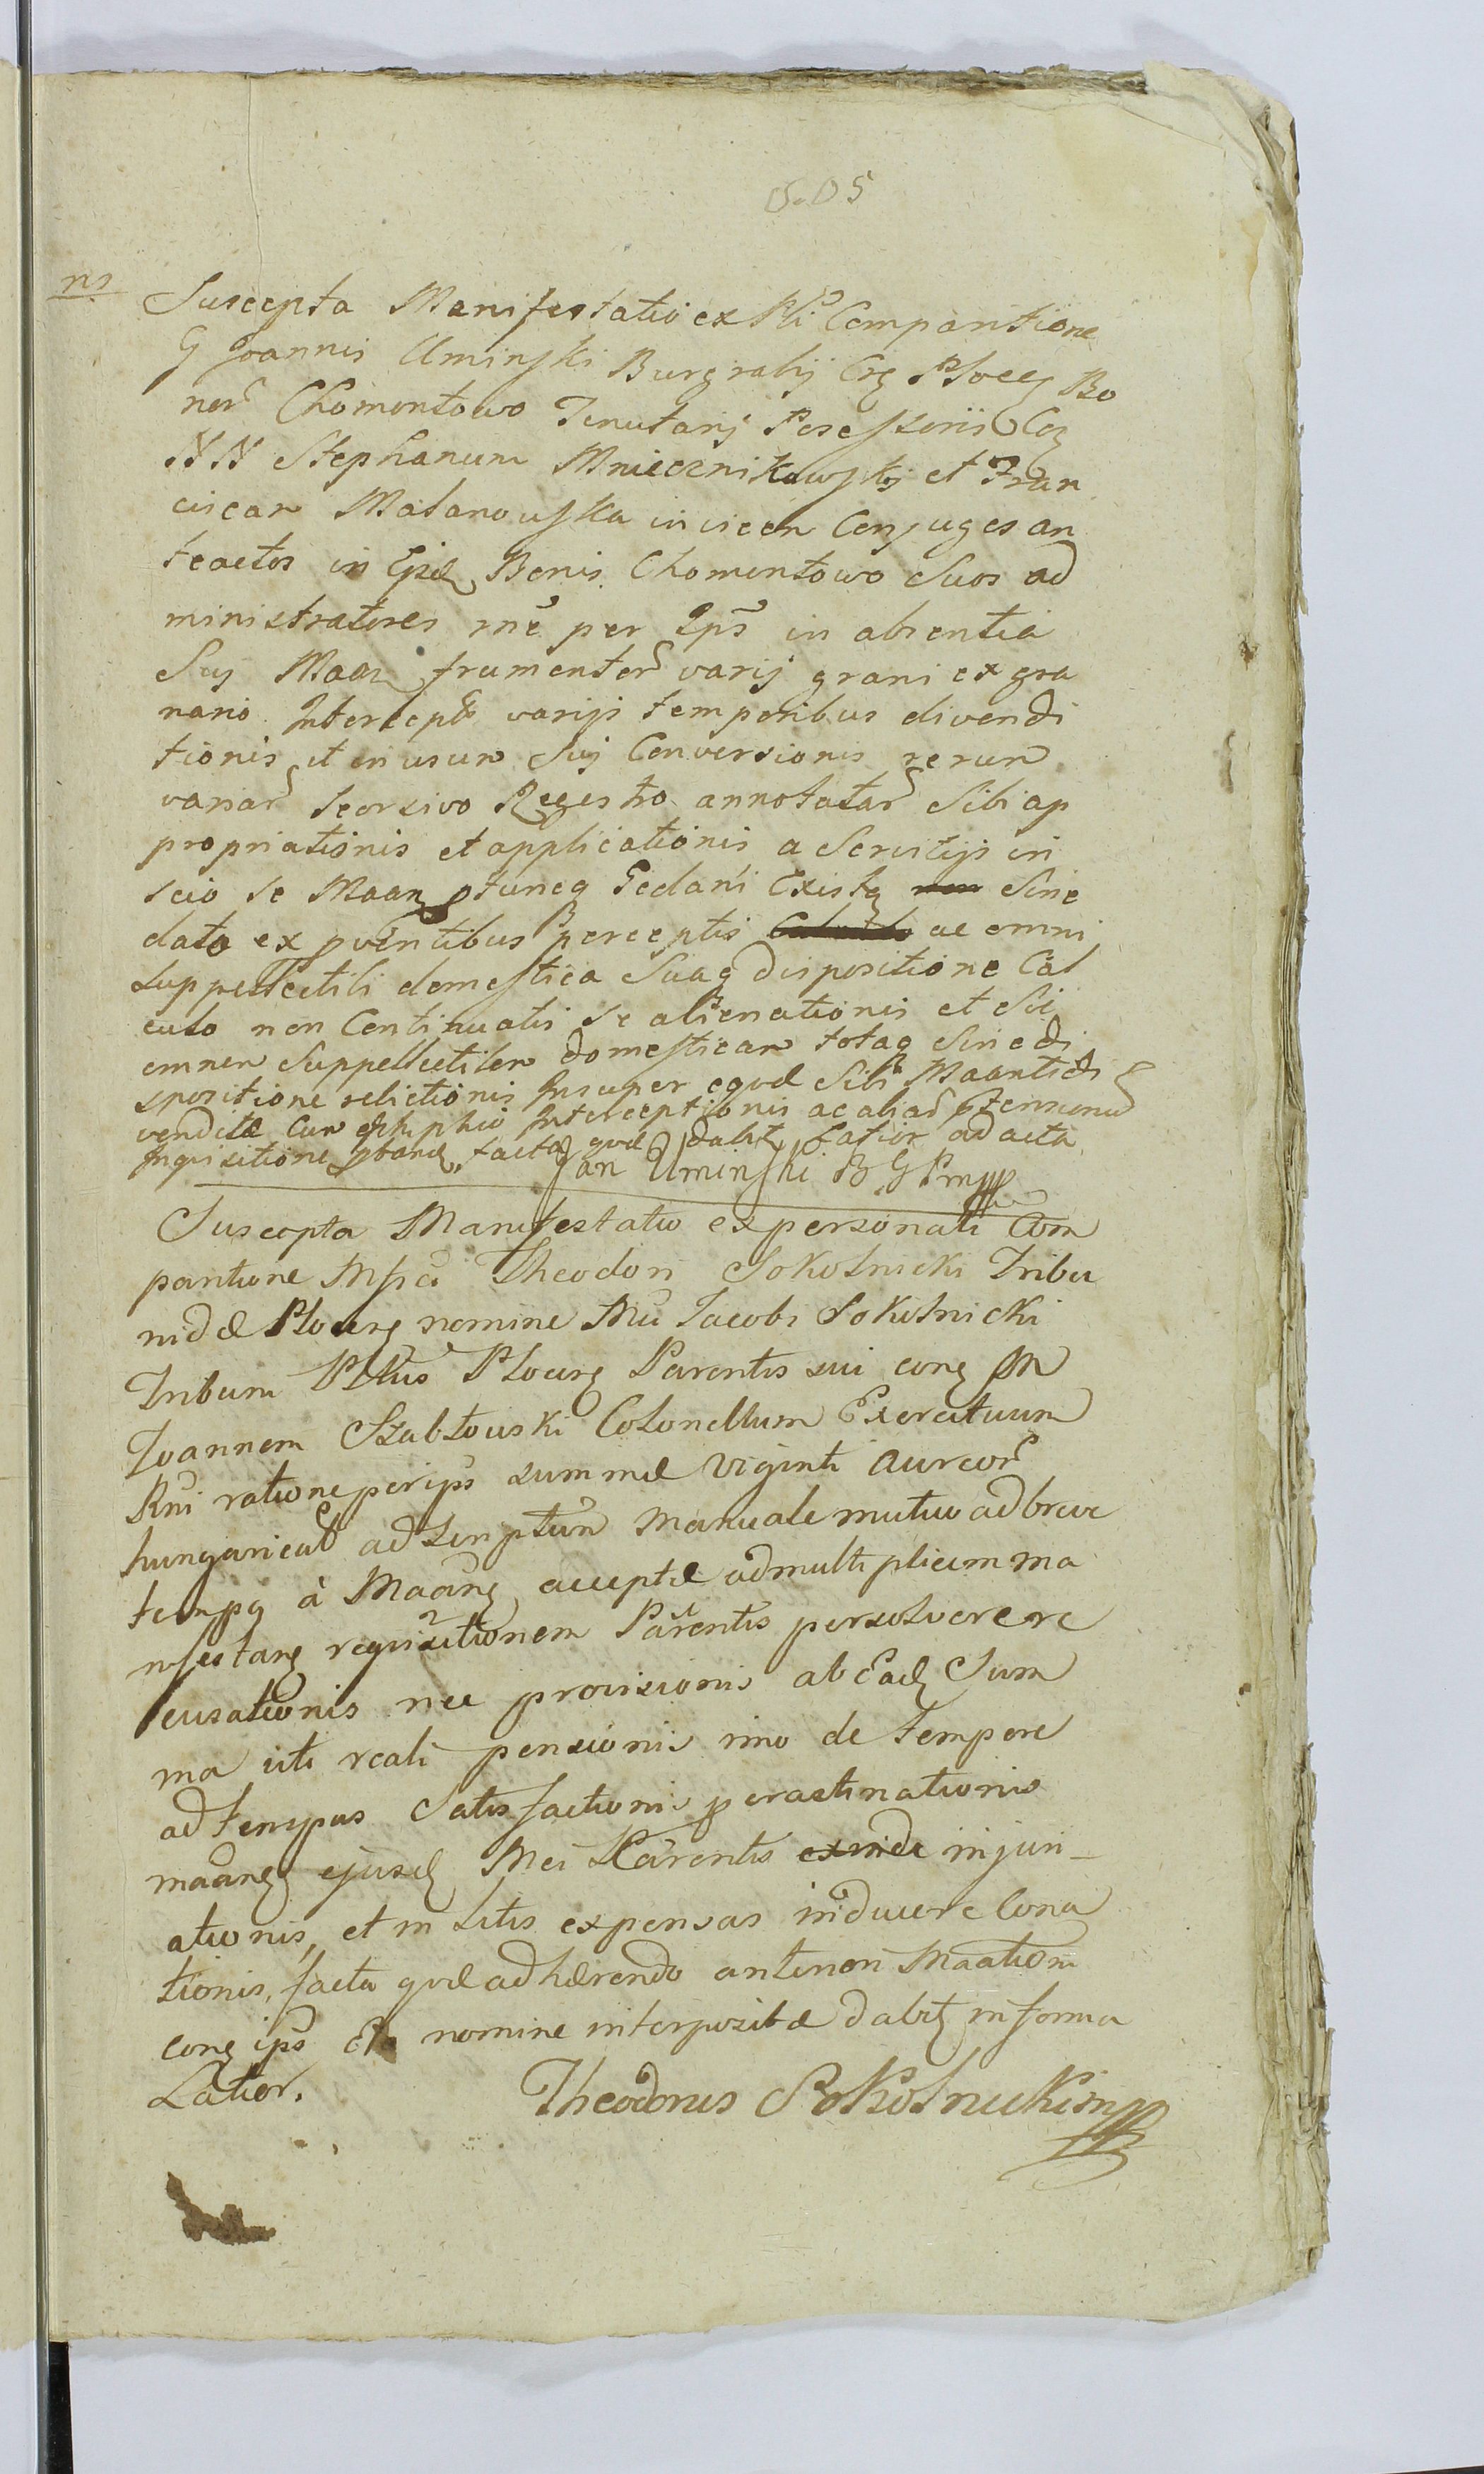 505
ns
Suscepta Manifestatio ex Pli Comparitione
G Joannis Uminski Burgrabij Crg Ploceg Bo
nor Chomentowo Tenutarij Possessoris Cor
NN Stephanum Mniecznikowski et Fran
ciscam Malanowska invicem Conjuges an
teactos in Ejsd Bonis Chomentowo Suos ad
ministratores rne per Ips in absentia
Suj Maan frumentor varij grani ex gra
nario Intercept varijs temporibus divendi
tionis et in usum Suj Conversionis rerum
variar seorsivo Regestro annotatar Sibi ap
propriationis et applicationis a Servitijs in
scio se Maan tuncq Gedani Existen Sine
dato ex pventibus perceptis ac omni
suppellectili domestica Suaq dispositione Cal
culo non Continuatis se alienationis et Sic
omnem Suppellectilem domesticam totaq Sine di
spositione relictionis Insuper equae Sibi Maanti di
venditae cum Interceptionis ac aliar ptensionu
Inquisitione pband facta quae dabit Latior ad acta
Jan Uminski B G P mpp
Suscepta Manifestatio ex personali Com
paritione Mfci Theodori Sokolnicki Tribu
nidae Plocen nomine Mci Jacobi Sokolnicki
Tribuni Pltus Plocen Parentis sui con M
Joannem Szablowski Colonellum Exercituum
Rni ratione per ips summae viginti aureor
hungarical ad scriptum manuale mutuo ad breve
tempq à Maan acceptae ad multiplicem ma
nifestan requisitionem Parentis persolvere re
cusationis nec provisionis ab Ead Sum
ma uti reali pensionis imo de tempore
ad tempus Satisfactionis pcrastinationis
maan ejusd Mei Parentis exinde injuri-
ationis, et in Litis expensas inducere Cona
tionis, facta quae adhaerendo anteriori Maationi
con ips Eo nomine interpositae dabit in forma
Latior.
Theodorus Sokolnicki mpp